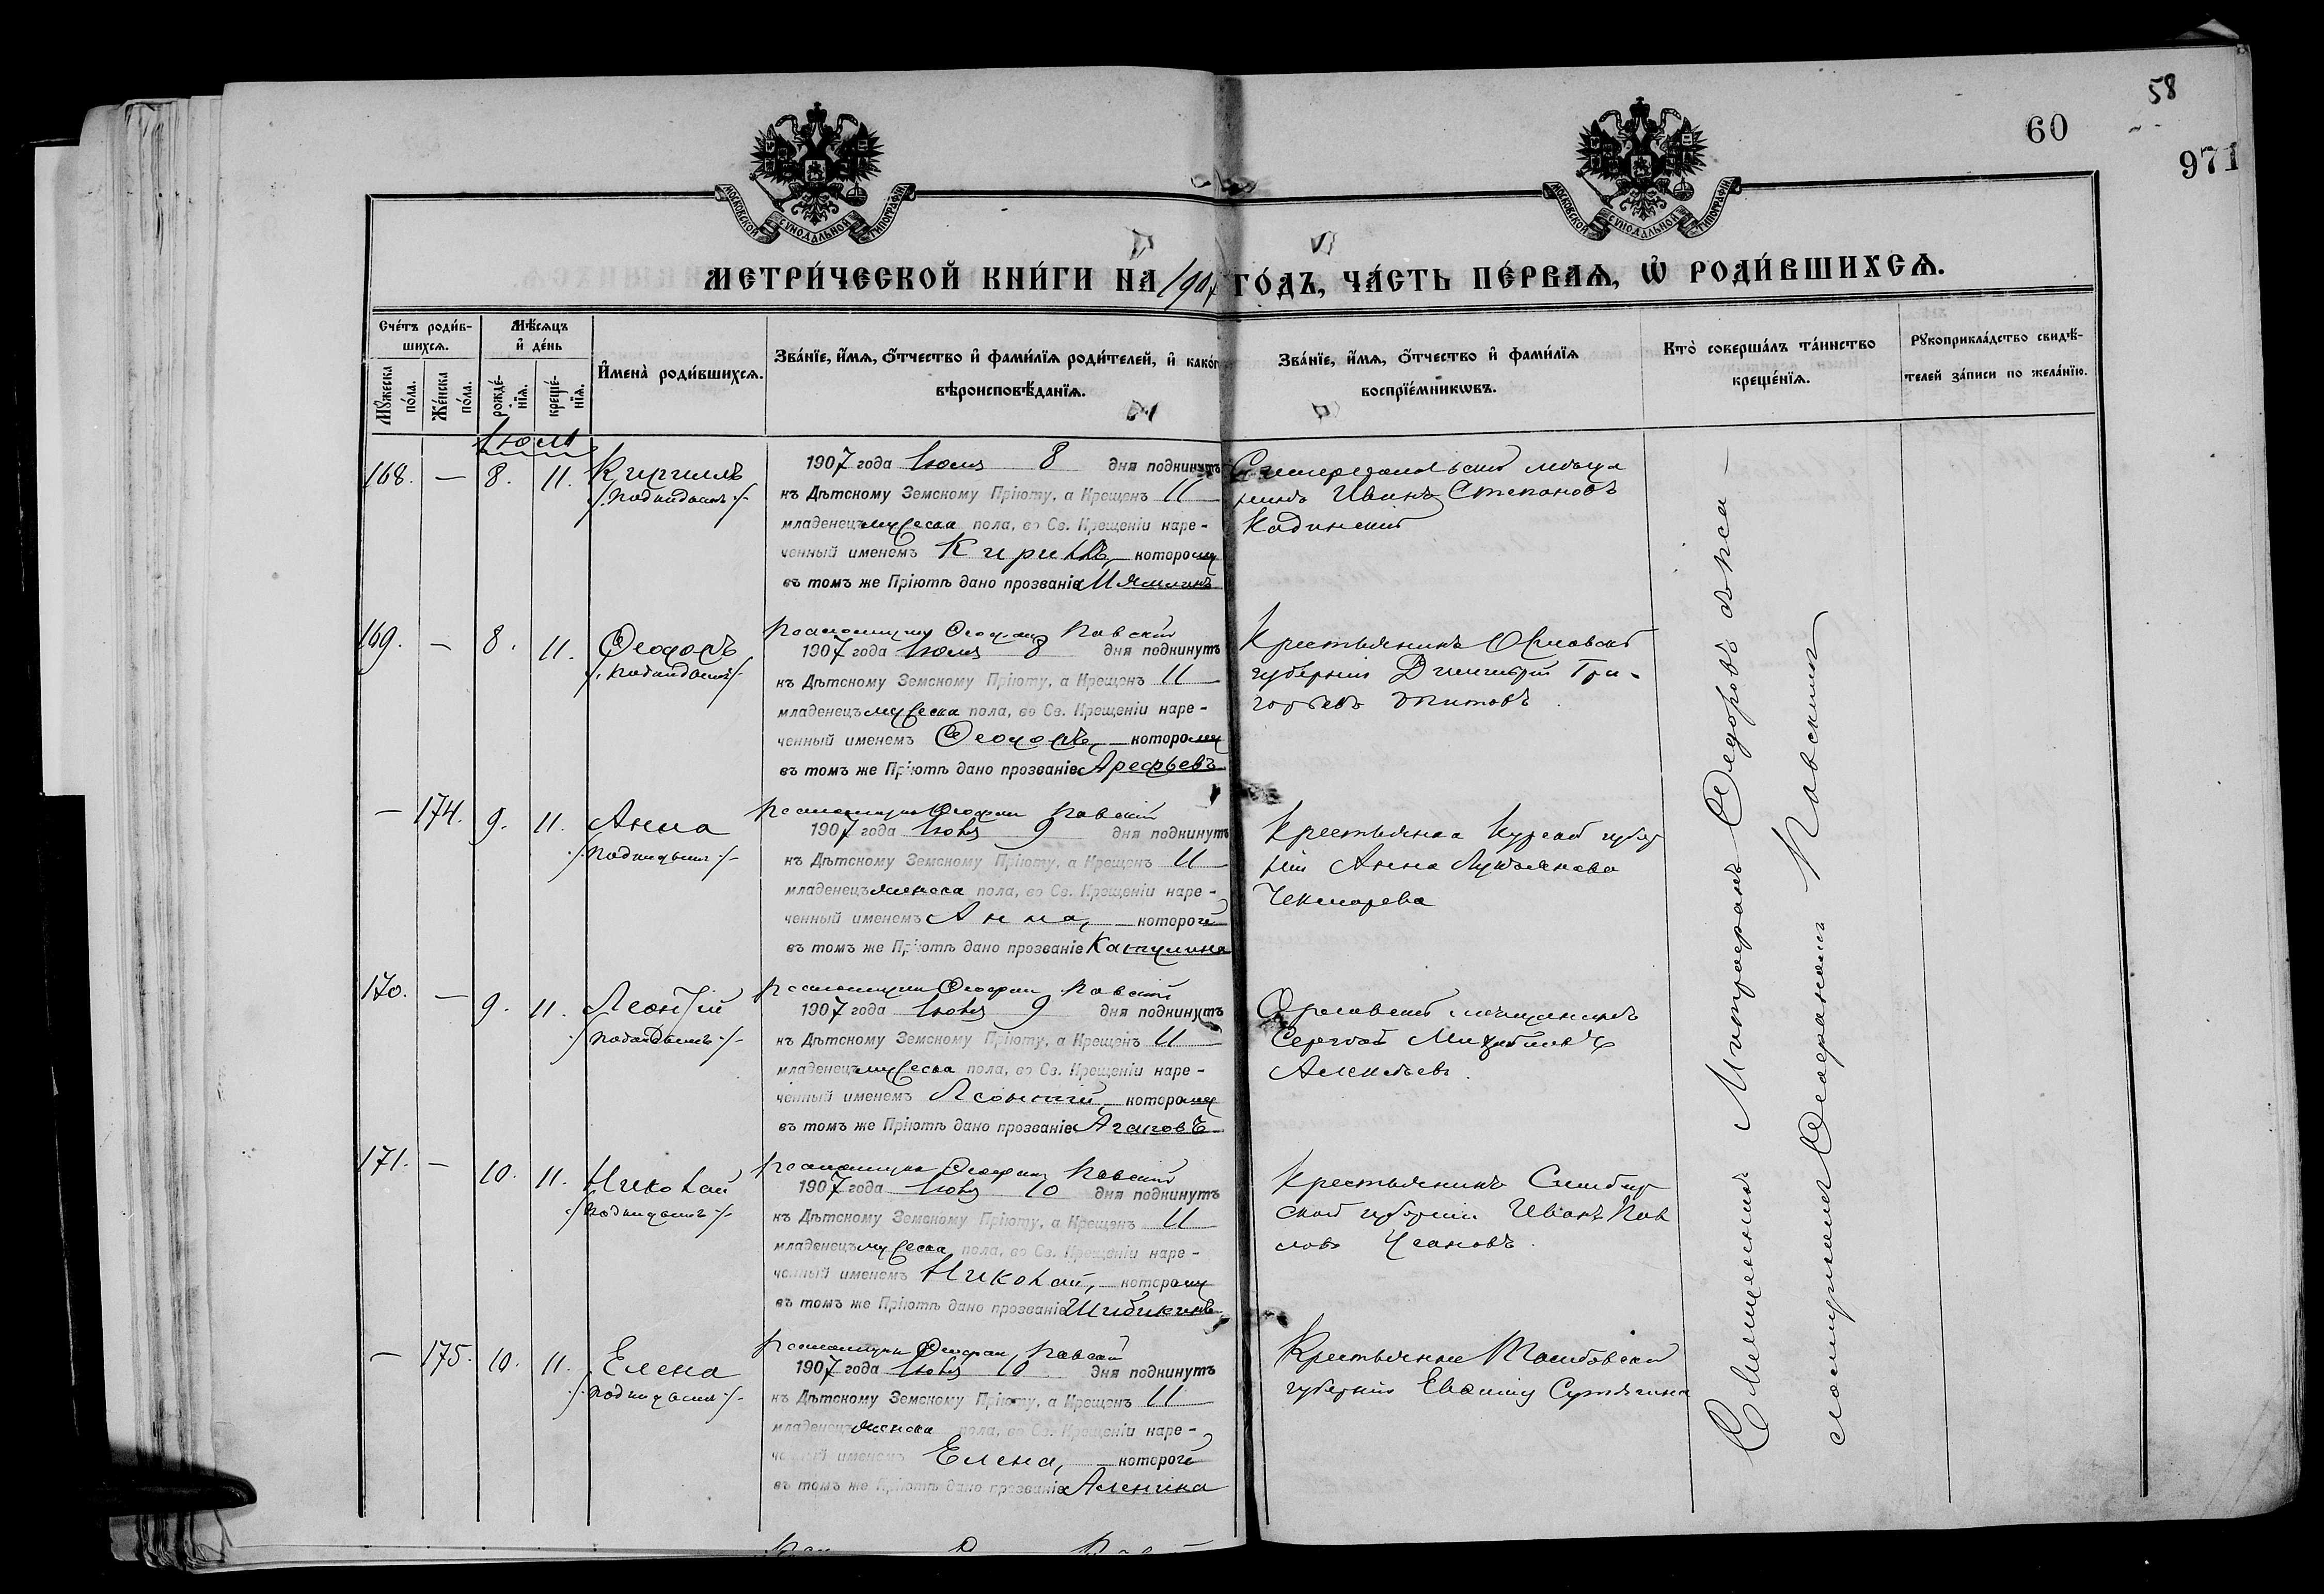 58
60
971
МОСКОВСКОЙ СѴНОДАЛЬНОЙ ТИПОГРАФІИ
МОСКОВСКОЙ СѴНОДАЛЬНОЙ ТИПОГРАФІИ
МЕТРИ́ЧЕСКОЙ КНИ́ГИ НА 1907 ГО́ДЪ, ЧА́СТЬ ПЕ́РВАѦ, Ѡ҆ РОДИ́ВШИХСѦ.
Сче́тъ роди́в-
шихсѧ.
Мꙋ́жеска по́ла.
Же́нска по́ла.
Мѣ́сѧцъ
и҆ де́нь
рожде́-
нїѧ.
креще́-
нїѧ.
И҆мена̀ роди́вшихсѧ.
Зва́нїе, и҆́мѧ, ѻ҆́тчество и҆ фами́лїѧ роди́телей, и҆ како́гѡ
вѣроисповѣ́данїѧ.
Зва́нїе, и҆́мѧ, ѻ҆́тчество и҆ фами́лїѧ
воспрїе́мникѡвъ.
Кто̀ соверша́лъ та́инство
креще́нїѧ.
Рꙋкоприкла́дство свидѣ́-
телей за́писи по жела́нїю.
Іюль
168. — 8. 11. Кириллъ
/подкидышъ/
1907 года Іюля 8 дня подкинутъ
къ Дѣтскому Земскому Пріюту, а Крещенъ 11
младенецъ мужеска пола, во Св. Крещеніи наре-
ченный именемъ Кириллъ, которому
въ томъ же Пріютѣ дано прозваніе
Симферопольскій мѣща
нинъ Иванъ Степановъ
Кадинскій
169. — 8. 11. Ѳеодоръ
/подкидышъ/
Псаломщикъ Ѳеофанъ Павскій
1907 года Іюля 8 дня подкинутъ
къ Дѣтскому Земскому Пріюту, а Крещенъ 11
младенецъ мужеска пола, во Св. Крещеніи наре-
ченный именемъ Ѳеодоръ, которому
въ томъ же Пріютѣ дано прозваніе Арефьевъ
Крестьянинъ Орловской
губерніи Димитрій Гри-
горьевъ Титовъ.
— 174. 9. 11. Анна
/подкидышъ/
Псаломщикъ Ѳеофанъ Павскій
1907 года Іюля 9 дня подкинутъ
къ Дѣтскому Земскому Пріюту, а Крещенъ 11
младенецъ женска пола, во Св. Крещеніи наре-
ченный именемъ Анна, которой
въ томъ же Пріютѣ дано прозваніе Катулина
Крестьянка Курской губер
ніи Анна Лукьянова
Чекмарева
170. — 9. 11. Леонтій
/подкидышъ/
Псаломщикъ Ѳеофанъ Павскій
1907 года Іюля 9 дня подкинутъ
къ Дѣтскому Земскому Пріюту, а Крещенъ 11
младенецъ мужеска пола, во Св. Крещеніи наре-
ченный именемъ Леонтій, которому
въ томъ же Пріютѣ дано прозваніе Агаповъ
мѣщанинъ
Сергѣй
Алексѣевъ.
171. — 10. 11. Николай
/подкидышъ/
Псаломщикъ Ѳеофанъ Павскій
1907 года Іюля 10 дня подкинутъ
къ Дѣтскому Земскому Пріюту, а Крещенъ 11
младенецъ мужеска пола, во Св. Крещеніи наре-
ченный именемъ Николай, которому
въ томъ же Пріютѣ дано прозваніе Шибикинъ
Крестьянинъ Симбир
ской губерніи Иванъ Пав
ловъ
— 175. 10. 11. Елена
/подкидышъ/
Псаломщикъ Ѳеофанъ Павскій
1907 года Іюля 10 дня подкинутъ
къ Дѣтскому Земскому Пріюту, а Крещенъ 11
младенецъ женска пола, во Св. Крещеніи наре-
ченный именемъ Елена, которой
въ томъ же Пріютѣ дано прозваніе Аленина
Крестьянка Тамбовской
губерніи
Священникъ Митрофанъ Ѳедоровъ съ пса —
ломщикомъ Ѳеофаномъ Павскимъ